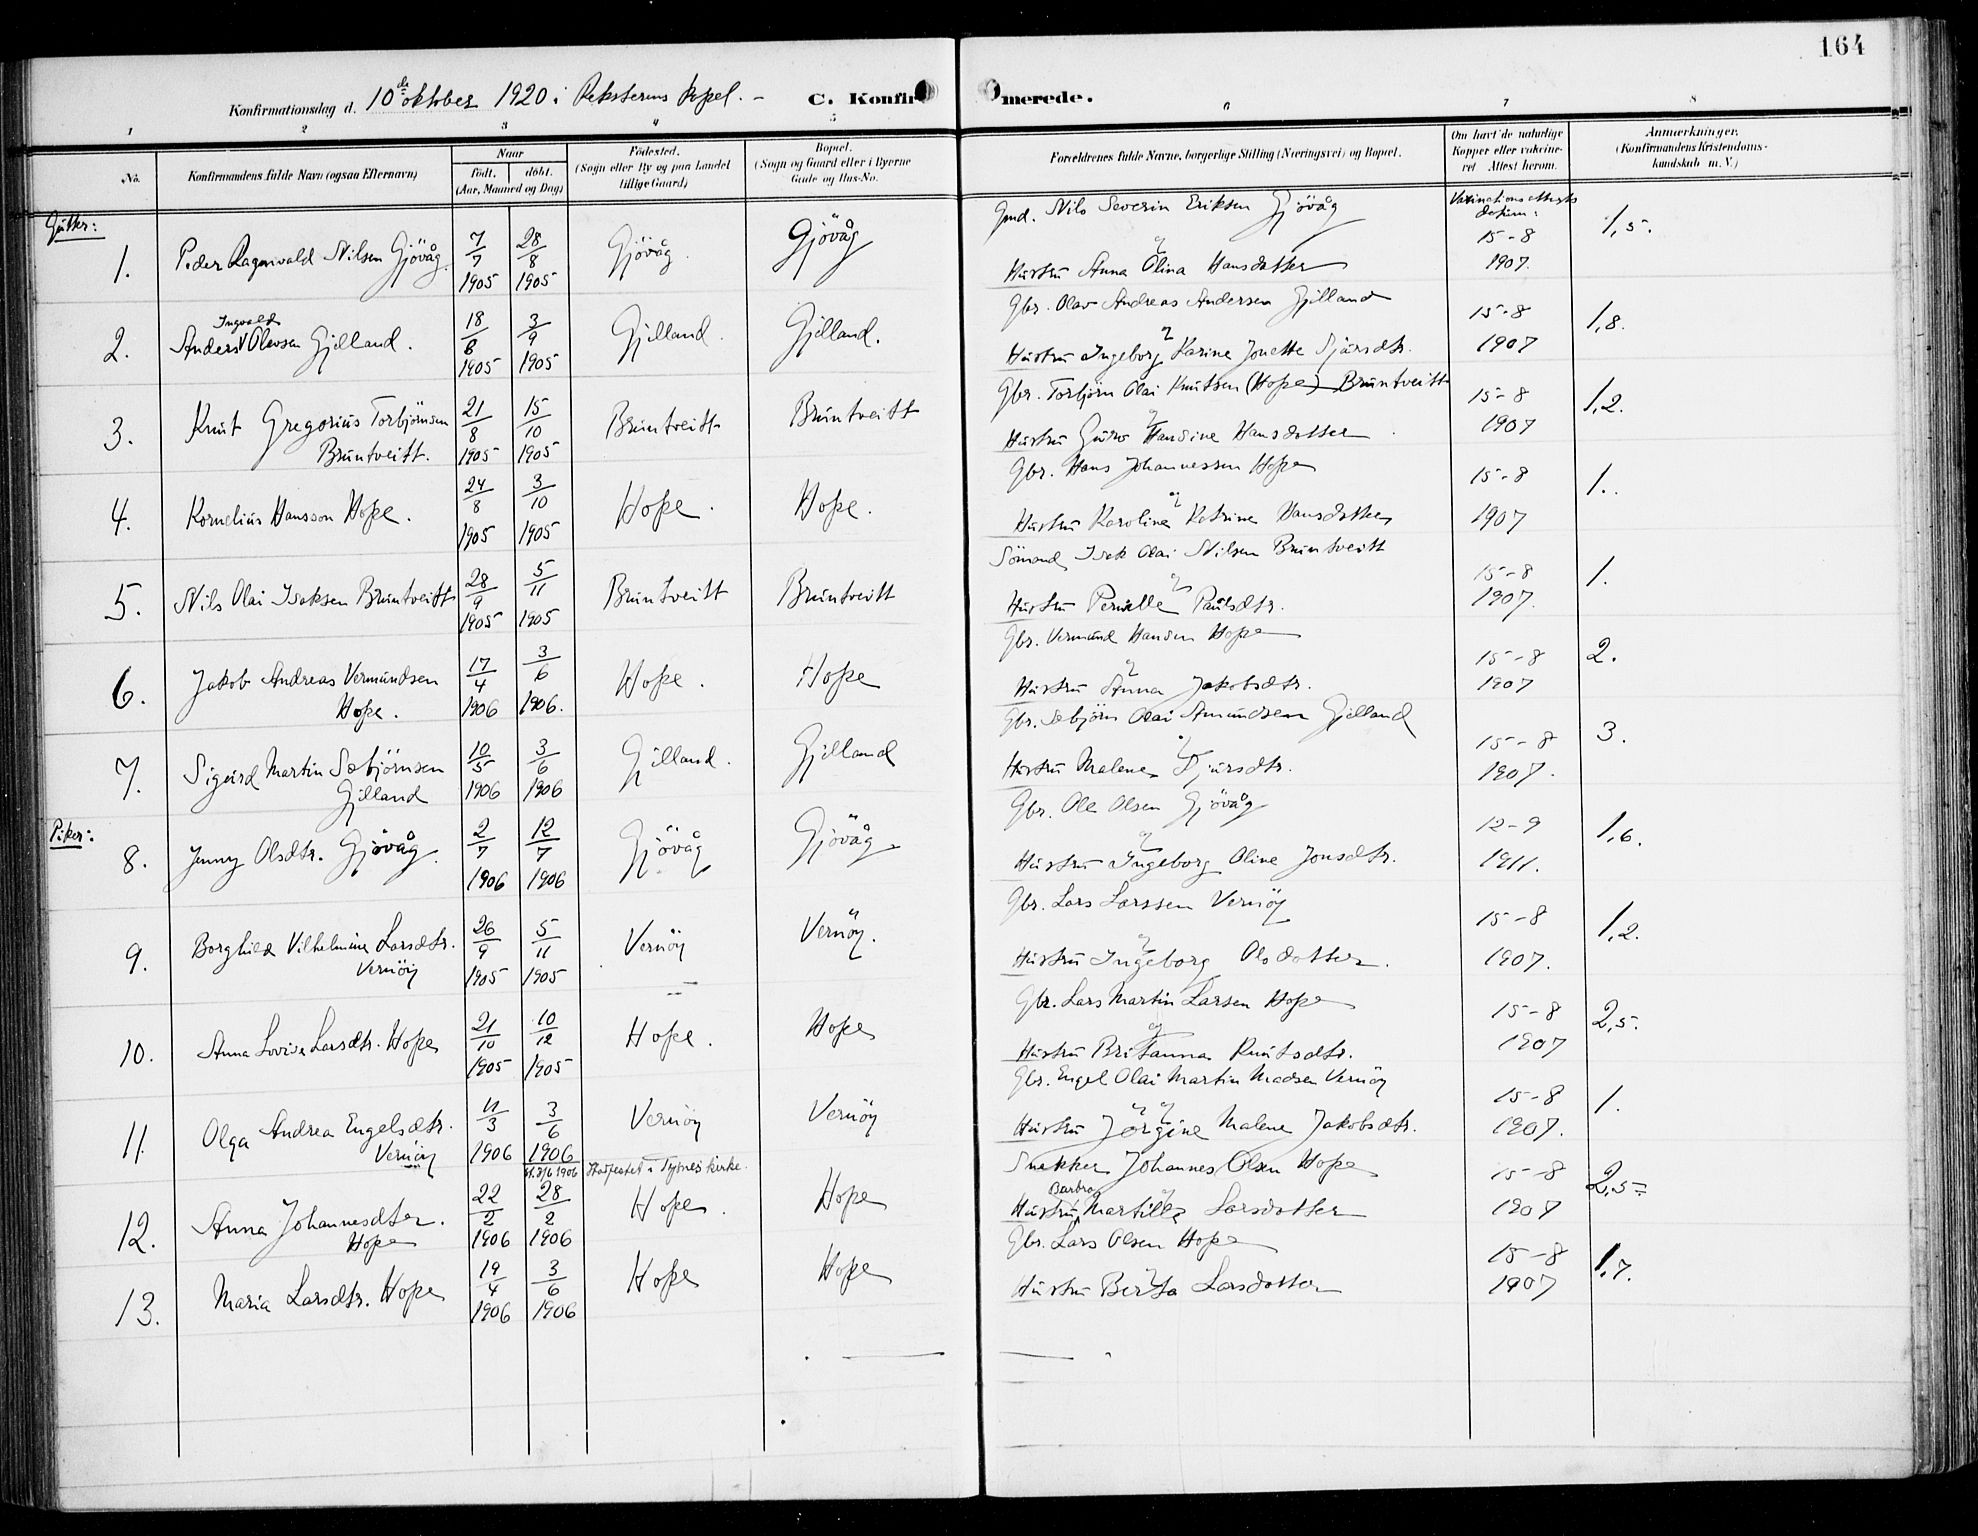 164
Konfirmationsdag d. 10de oktober 1920 i Reksterens kapel. - C. Konfirmerede.
1 2 3 4 5 6 7 8
No. Konfirmandens fulde Navn (ogsaa Efternavn) Naar født. døbt. (Aar, Maaned og Dag) Fødested. (Sogn eller By og paa Landet tillige Gaard) Bopæl. (Sogn og Gaard eller i Byerne Gade og Hus-No. Forældrenes fulde Navne, borgerlige Stilling (Næringsvei) og Bopæl. Om havt de naturlige Kopper eller vakcineret Attest herom. Anmærkninger. (Konfirmandens Kristendomskundskab m. V.)
Gutter:
1. Peder Ragnvald Nilsen Gjövåg 7/7 1905 28/8 1905 Gjövåg. Gjövåg Gmd. Nils Severin Eriksen Gjövåg
Hustru Anna Olina Hansdatter 15-8 1907. 1,5.
2. Anders Ingvald Olavsen Gjelland. 18/8 1905 3/9 1905 Gjelland. Gjelland. Gbr. Olav Andreas Andersen Gjelland
Hustru Ingeborg Karine Jonette Sjursdtr. 15-8 1907 1,8.
3. Knut Gregorius Torbjörnsen Bruntveitt. 21/8 1905 15/10 1905 Bruntveitt Bruntveitt Gbr. Torbjörn Olai Knutsen (Hope) Bruntveitt
Hustru Guro Hansine Hansdatter 15-8 1907 1,2.
4. Kornelius Hansson Hope. 24/8 1905 3/10 1905 Hope. Hope. Gbr. Hans Johannessen Hope
Hustru Karoline Katrine Hansdatter 15-8 1907 1.
5. Nils Olai Isaksen Bruntveitt 28/9 1905 5/11 1905 Bruntveitt Bruntveitt Sömand Isak Olai Nilsen Bruntveitt
Hustru Pernille Paulsdtr. 15-8 1907. 1.
6. Jakob Andreas Vermundsen Hope. 17/4 1906 3/6 1906. Hope. Hope Gbr. Vermund Hansen Hope
Hustru Anna Jakobsdtr. 15-8 1907 2.
7. Sigurd Martin Sæbjörnsen Gjelland 10/5 1906 3/6 1906 Gjelland. Gjelland Gbr. Sæbjörn Olai Amundsen Gjelland
Hustru Malene Sjursdtr. 15-8 1907. 3.
Piker:
8. Jenny Olsdtr. Gjövåg. 2/7 1906 12/7 1906 Gjövåg Gjövåg Gbr. Ole Olsen Gjövåg
Hustru Ingeborg Oline Jonsdtr. 12-9 1911. 1,6.
9. Borghild Vilhelmine Larsdtr. Vernöy 26/9 1905 5/11 1905 Vernöy Vernöy. Gbr. Lars Larssen Vernöy
Hustru Ingeborg Olsdatter. 15-8 1907. 1,2.
10. Anna Lovise Larsdtr. Hope 21/10 1905 10/12 1905 Hope. Hope Gbr. Lars Martin Larsen Hope
Hustru Britanna Knutsdtr. 15-8 1907 2,5.
11. Olga Andrea Engelsdtr. Vernöy 11/3 1906 3/6 1906 Vernöy Vernöy Gbr. Engel Olai Martin Madsen Vernöy
Hustru Jörgine Malene Jakobsdtr. 15-8 1907. 1.
st. 3/6 1906 Stadfestet i Tysnes kirke.
12. Anna Johannesdter. Hope 22/2 1906 28/2 1906 Hope. Hope Snekker Johannes Olsen Hope
Hustru Barbra Martille Larsdatter 15-8 1907 2,5
13. Maria Larsdtr. Hope 19/4 1906 3/6 1906 Hope Hope Gbr. Lars Olsen Hope
Hustru Berta Larsdatter 15-8 1907 1,7.